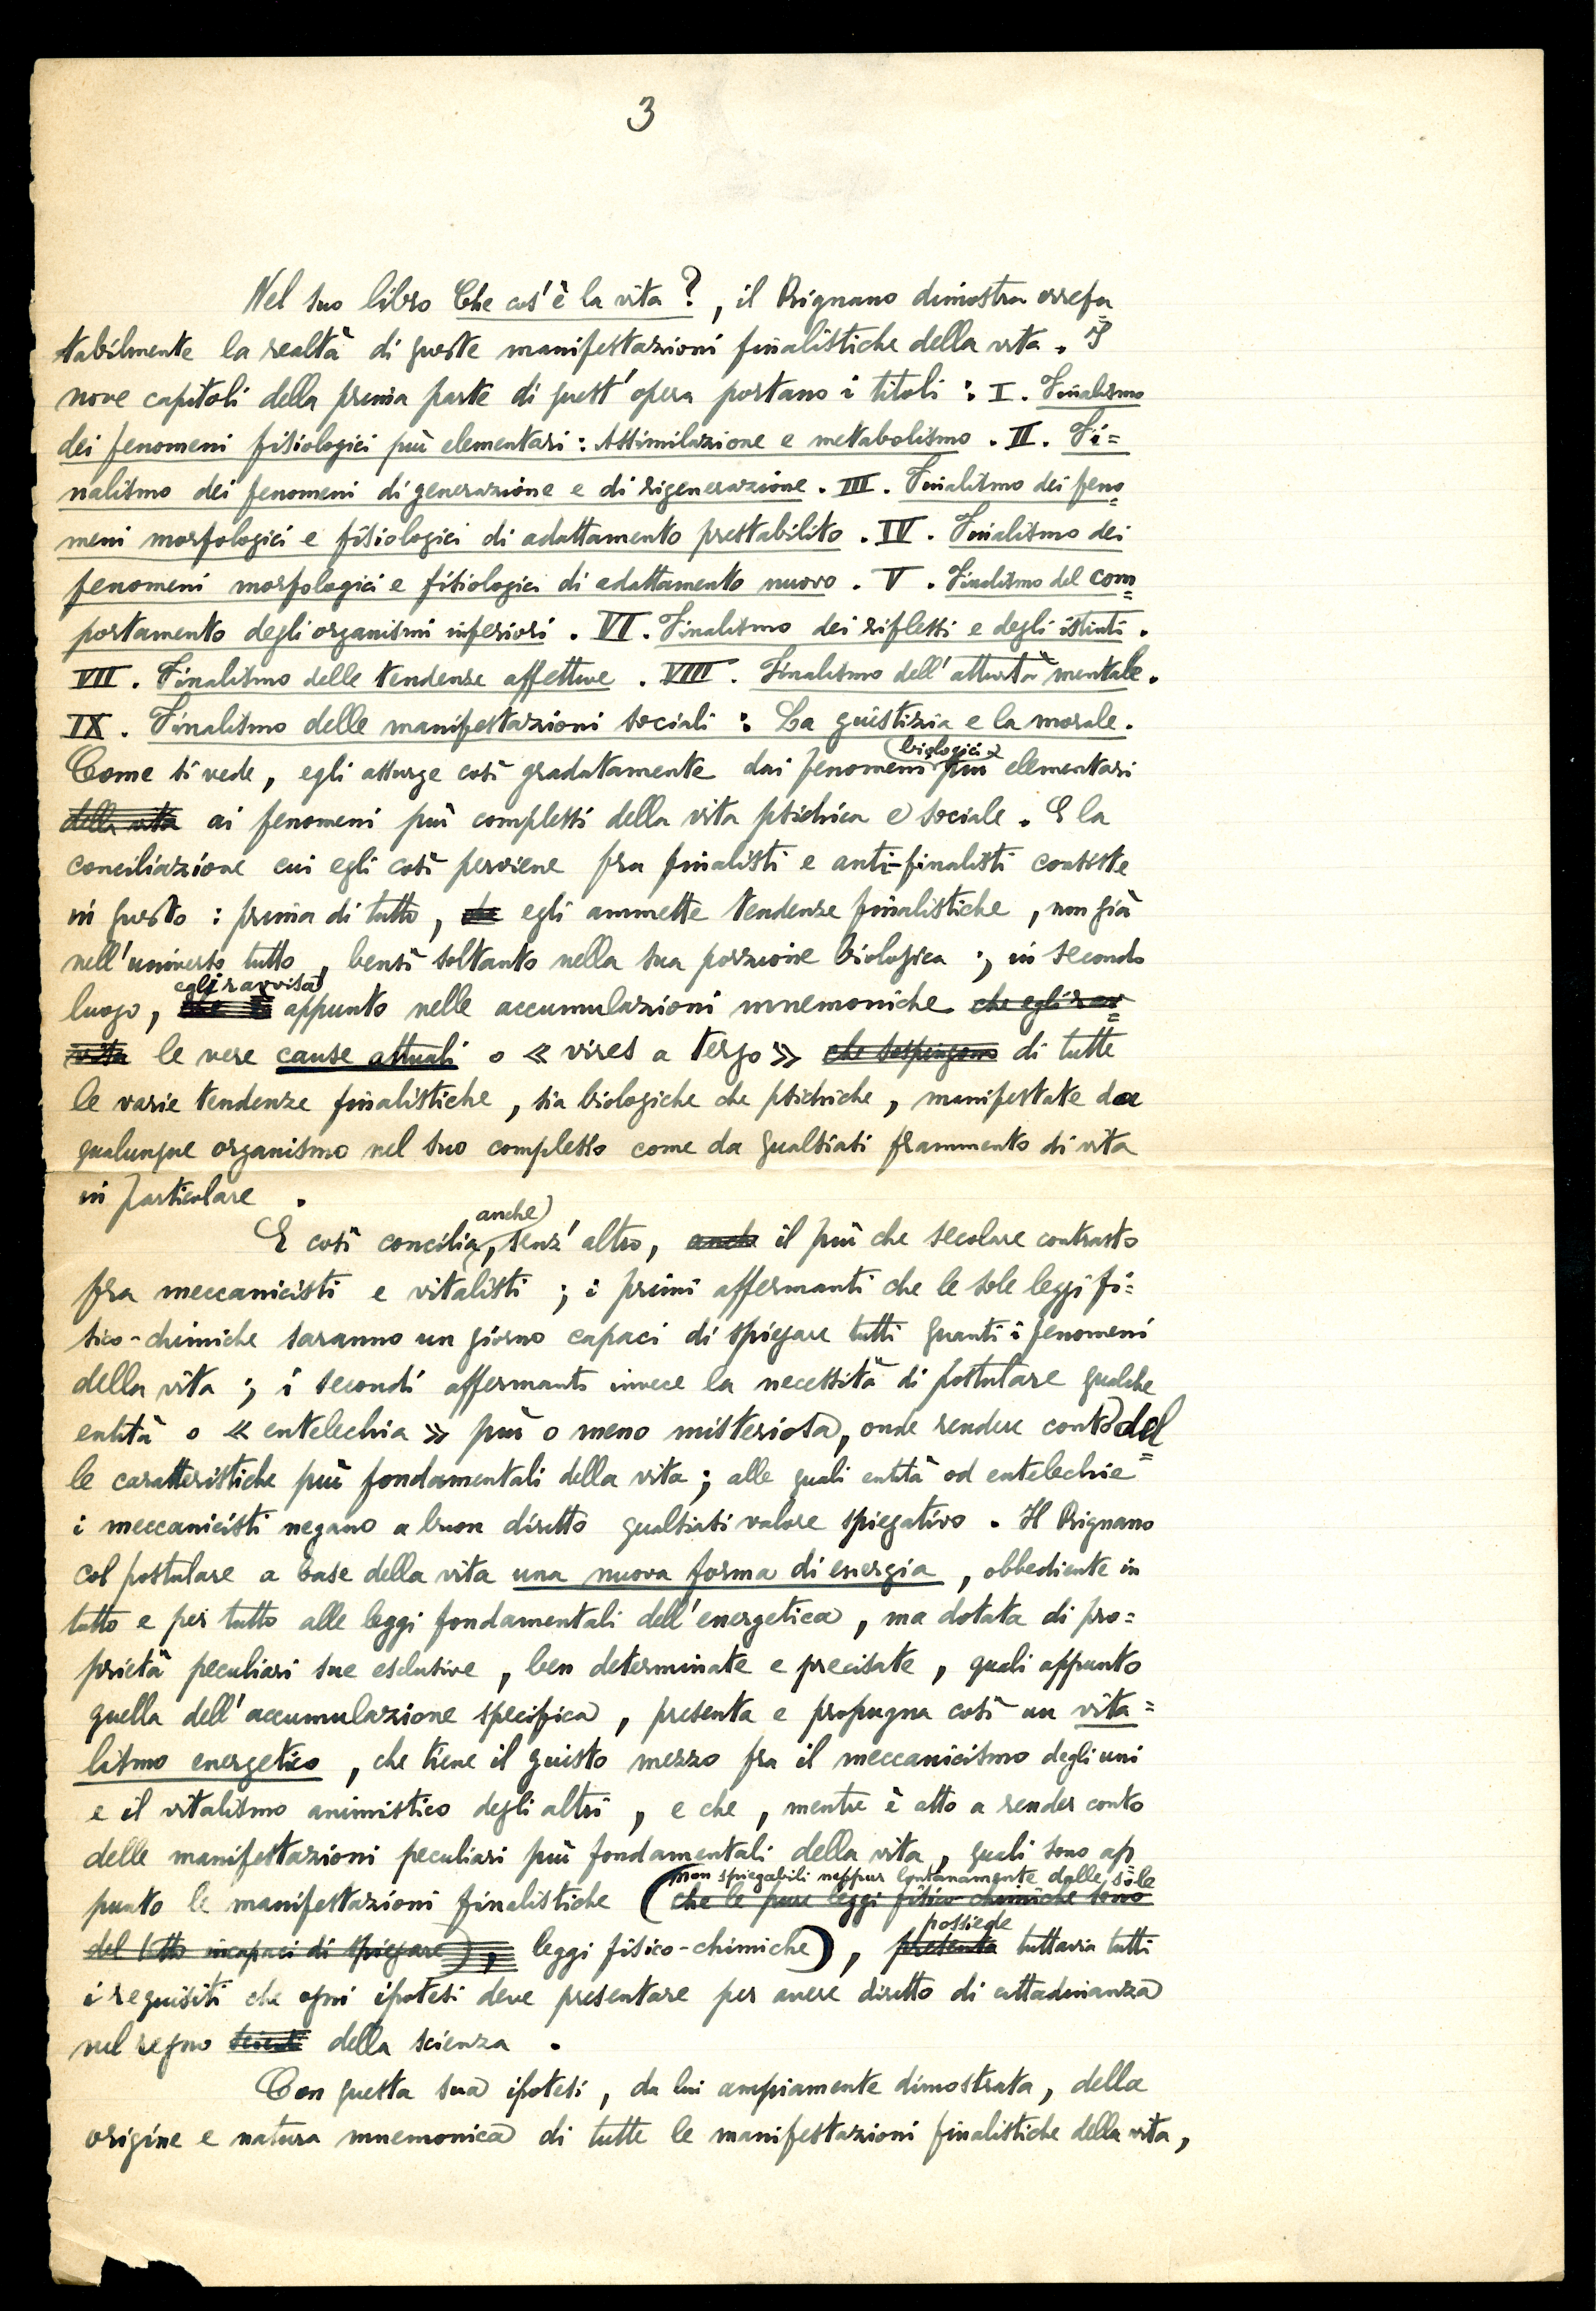 3
Nel suo libro Che cos'è la vita ?, il Rignano dimostra irrefu=
tabilmente la realtà di queste manifestazioni finalistiche della vita. I
nove capitoli della prima parte di quest'opera portano i titoli : I. Finalismo
dei fenomeni fisiologici più elementari : Assimilazione e metabolismo. II. Fi=
nalismo dei fenomeni di generazione e di rigenerazione. III. Finalismo dei feno=
meni morfologici e fisiologici di adattamento prestabilito. IV. Finalismo dei
fenomeni morfologici e fisiologici di adattamento nuovo. V. Finalismo del com=
portamento degli organismi inferiori. VI. Finalismo dei riflessi e degli istinti.
VII. Finalismo delle tendenze affettive. VIII. Finalismo dell'attività mentale.
IX. Finalismo delle manifestazioni sociali : La giustizia e la morale.
biologici
Come si vede, egli assurge così gradatamente dai fenomeni più elementari
della vita ai fenomeni più complessi della vita psichica e sociale. E la
conciliazione cui egli così perviene fra finalisti e anti-finalisti consiste
in questo : prima di tutto, che egli ammette tendenze finalistiche, non già
nell'universo tutto, bensì soltanto nella sua porzione biologica ; in secondo
egli ravvisa
luogo, appunto nelle accumulazioni mnemoniche che egli rav=
visa le vere cause attuali o « vires a tergo » che sospingono di tutte
le varie tendenze finalistiche, sia biologiche che psichiche, manifestate da
qualunque organismo nel suo complesso come da qualsiasi frammento di vita
in particolare.
anche
E così concilia, senz'altro, anche il più che secolare contrasto
fra meccanicisti e vitalisti ; i primi affermanti che le sole leggi fi=
sico-chimiche saranno un giorno capaci di spiegare tutti quanti i fenomeni
della vita ; i secondi affermanti invece la necessità di postulare qualche
entità o « entelechia » più o meno misteriosa, onde rendere conto del=
le caratteristiche più fondamentali della vita ; alle quali entità od entelechie
i meccanicisti negano a buon diritto qualsiasi valore spiegativo. Il Rignano
col postulare a base della vita una nuova forma di energia, obbediente in
tutto e per tutto alle leggi fondamentali dell'energetica, ma dotata di pro=
prietà peculiari sue esclusive, ben determinate e precisate, quali appunto
quella dell'accumulazione specifica, presenta e propugna così un vita=
lismo energetico, che tiene il giusto mezzo fra il meccanicismo degli uni
e il vitalismo animistico degli altri, e che, mentre è atto a render conto
delle manifestazioni peculiari più fondamentali della vita, quali sono ap
non spiegabili neppur lontanamente dalle sole
punto le manifestazioni finalistiche (che le pure leggi fisico-chimiche sono
possiede
del tutto incapaci di spiegare), leggi fisico-chimiche), presenta tuttavia tutti
i requisiti che ogni ipotesi deve presentare per avere diritto di cittadinanza
nel regno della scienza.
Con questa sua ipotesi, da lui ampiamente dimostrata, della
origine e natura mnemonica di tutte le manifestazioni finalistiche della vita,